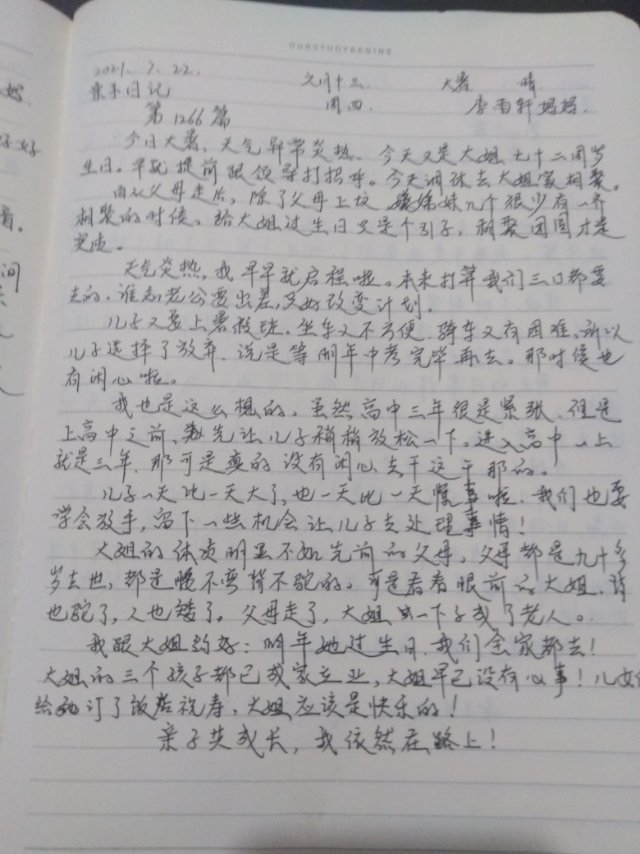 OURSTUDYBEGINS
2021.7.22. 六月十三 大暑 晴
亲子日记 周四 李雨轩妈妈.
第1266篇
今日大暑,天气异常炎热。今天又是大姐七十二周岁
生日。早就提前跟领导打招呼。今天调休去大姐家相聚。
自从父母走后,除了父母上坟 姊妹几个很少有一齐
相聚的时候。给大姐过生日只是个引子,相聚团圆才是
实速。
天气炎热,我早早就启程啦。本来打算我们三口都要
去的,谁知老公要出差,只好改变计划.
儿子又要上暑假班.坐车又不方便.骑车又有困难,所以
儿子选择了放弃.说是等明年中考完毕再去。那时候也
有闲心啦。
我也是这么想的。虽然高中三年很是紧张.但是
上高中之前,先让儿子稍稍放松一下。进入高中一上
就是三年.那可是真的没有闲心去干这干那的。
儿子一天比一天大了,也一天比一天懂事啦.我们也要
学会放手,留下一些机会让儿子去处理事情!
大姐的体质明显不如先前的父母,父母都是九十多
岁去世,都是腰不弯背不驼的。可是看看眼前的大姐.背
也驼了,人也矮了。父母走了,大姐一下子成了老人。
我跟大姐约好:明年她过生日.我们全家都去!
大姐的三个孩子都已成家立业,大姐早已没有心事!儿女们
给她订了饭店祝寿,大姐应该是快乐的!
亲子共成长,我依然在路上!